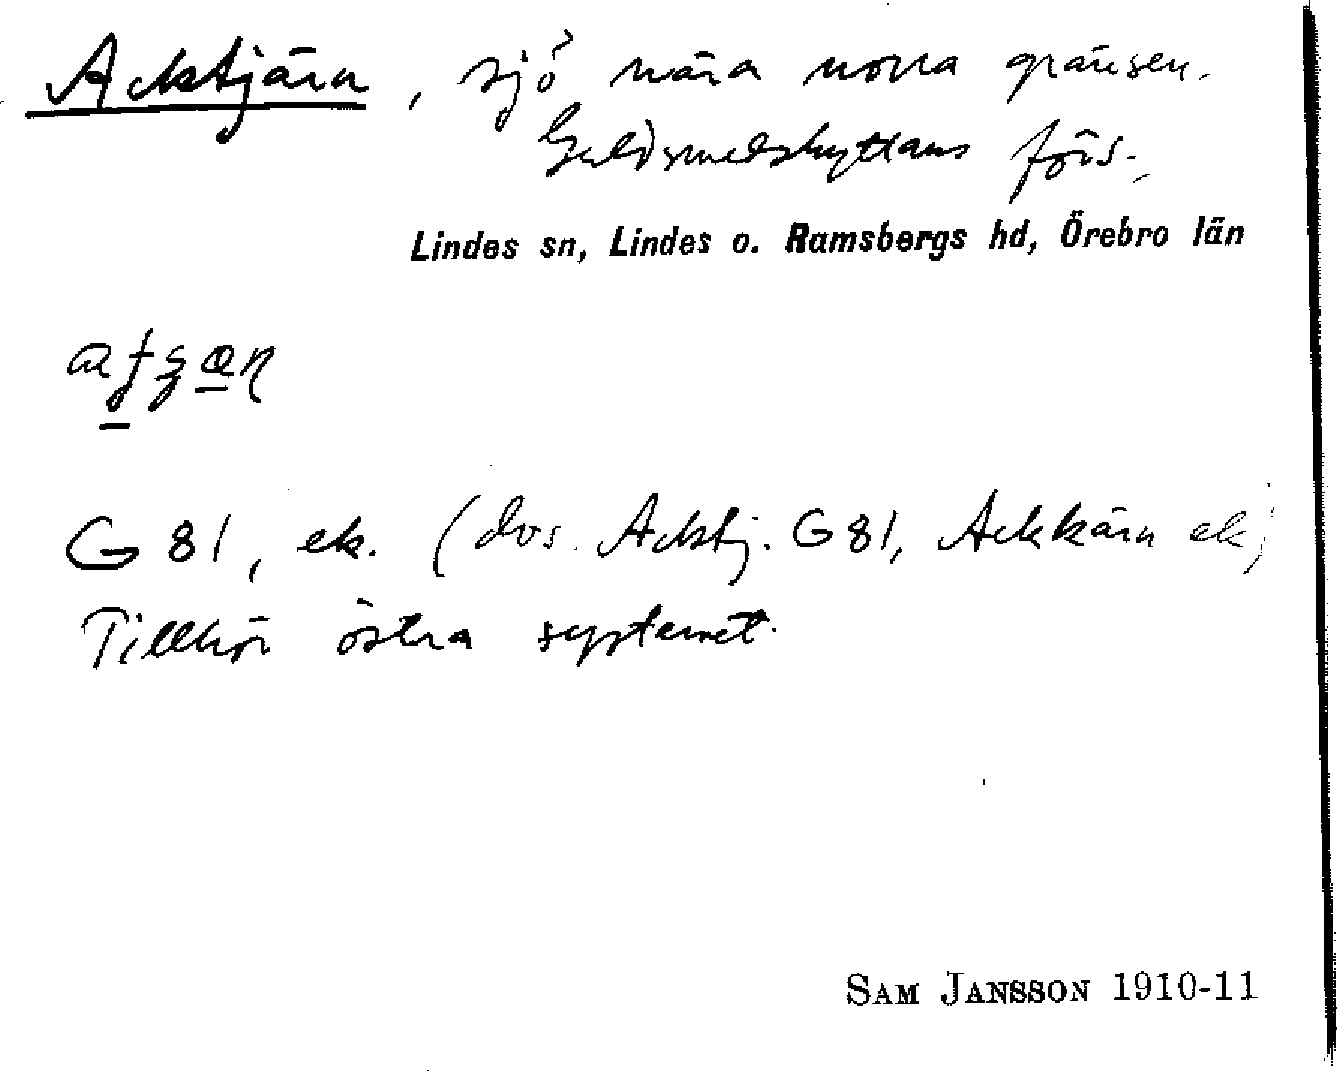 Acktjärn, sjö nära norra gränsen.
Guldsmedshyttans förs.,
Lindes sn, Lindes o. Ramsbergs hd, Örebro län
G 81, ek. (dvs. Acktj. G 81, Ackkärn ek)
Tillhör östra systemet.
SAM JANSSON 1910-11